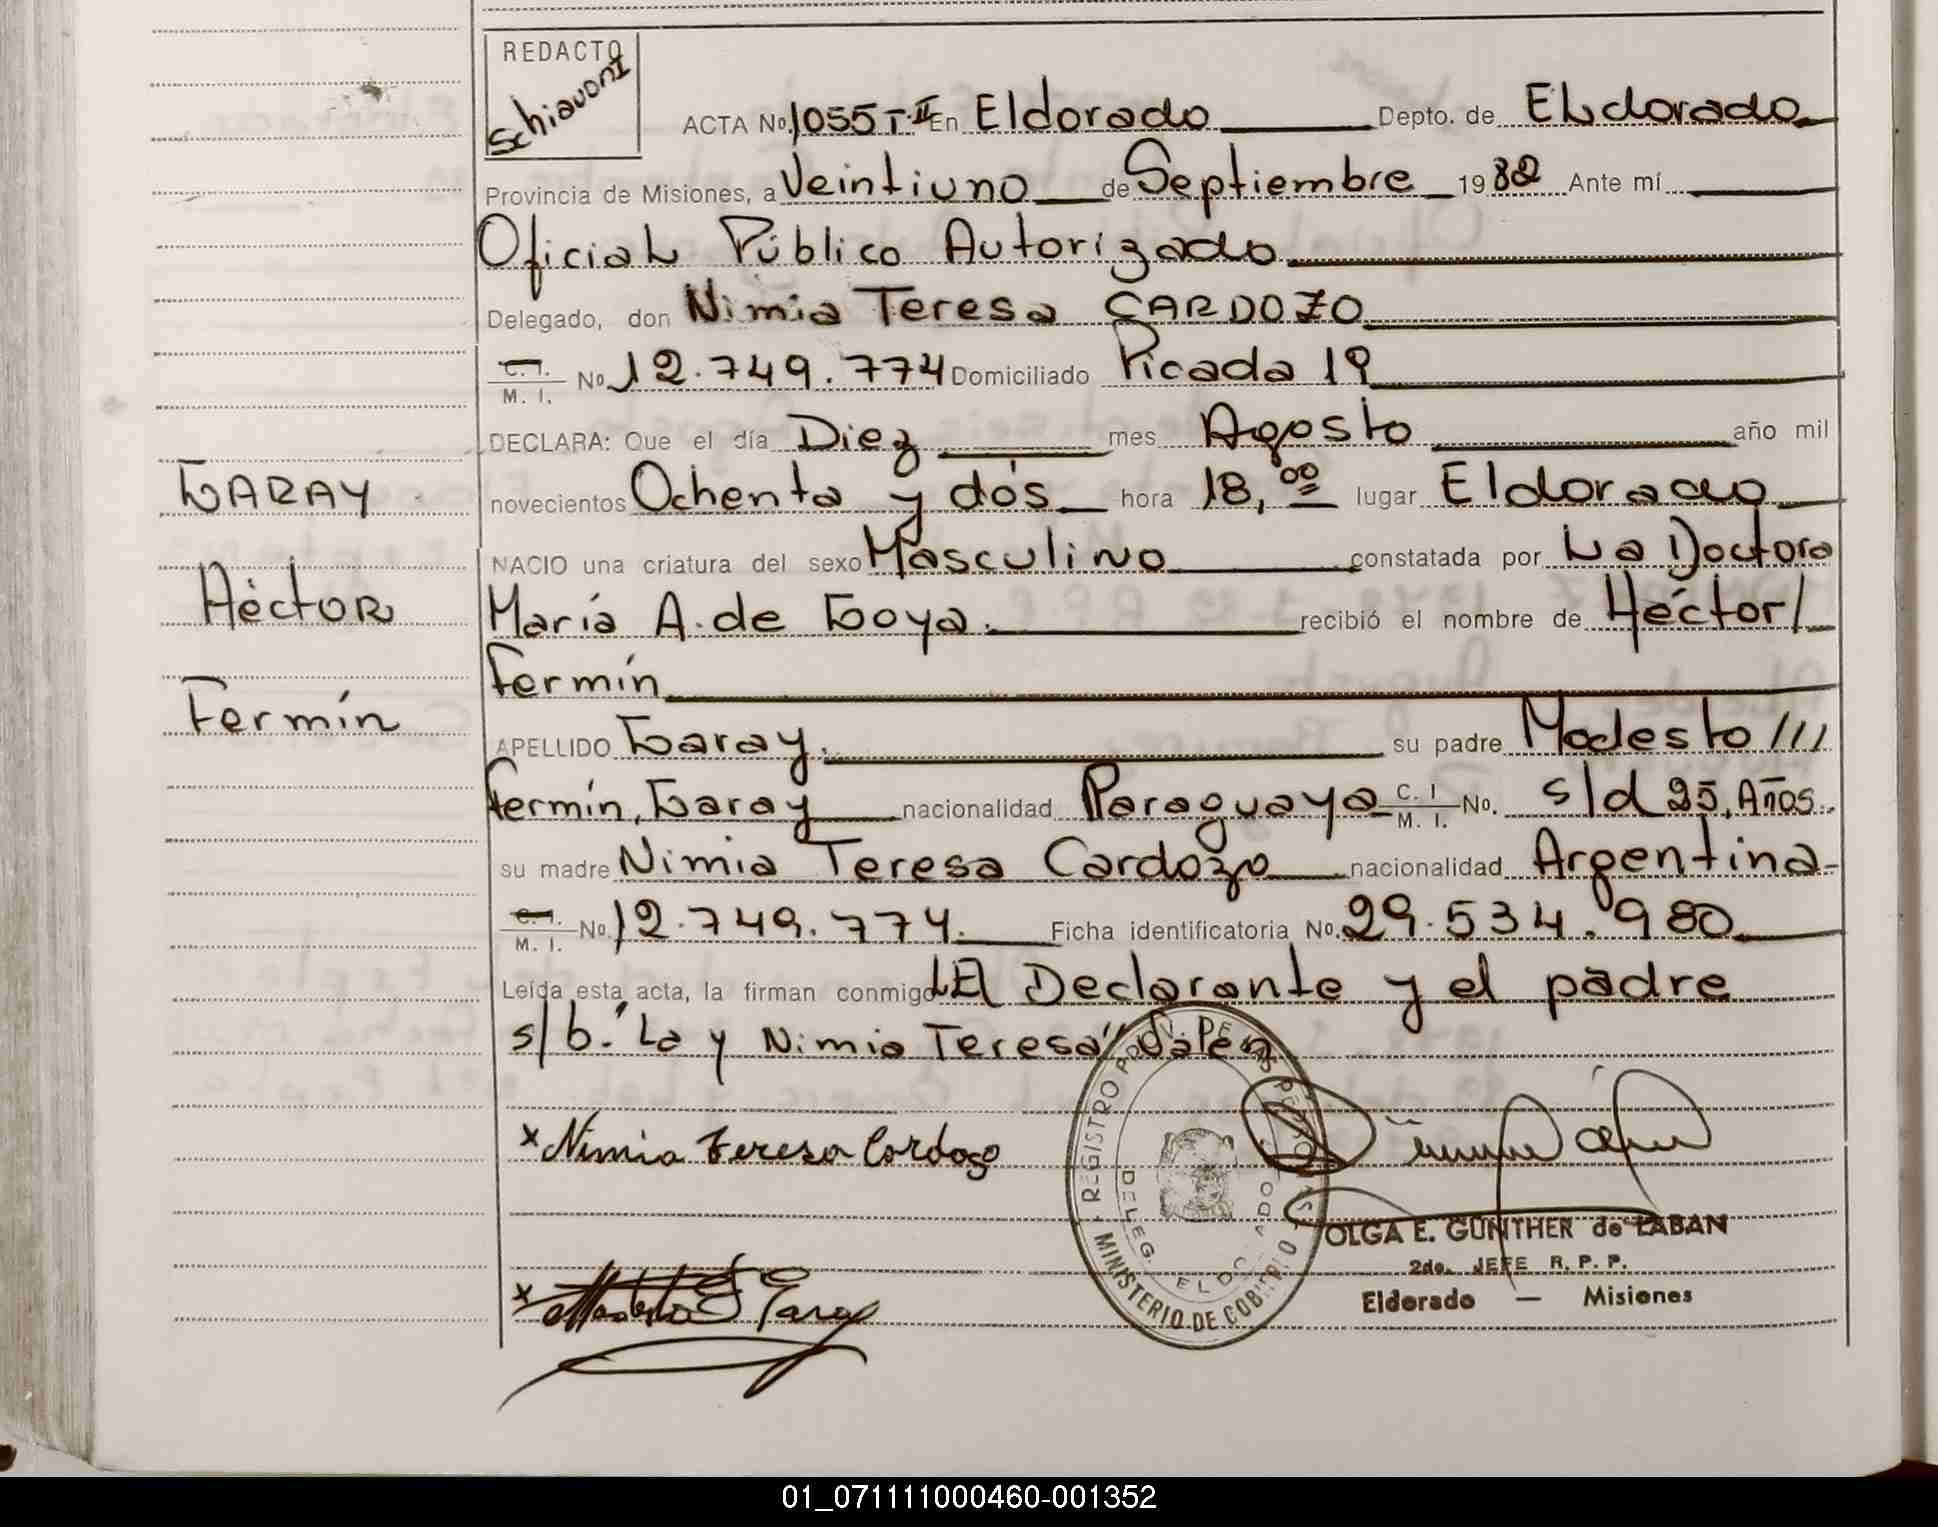 REDACTO
Schiavoni
ACTA No. 1055 T. II En Eldorado Depto. de Eldorado
Provincia de Misiones, a Veintiuno de Septiembre 1982 Ante mí
Oficial Público Autorizado
Delegado, don Nimia Teresa CARDOZO
C. I. M. I. No. 12.749.774 Domiciliado Picada 19
DECLARA: Que el día Diez mes Agosto año mil
novecientos Ochenta y dós hora 18,00 lugar Eldorado
NACIO una criatura del sexo Masculino constatada por La Doctora
María A. de Goya. recibió el nombre de Héctor/
Fermín
APELLIDO Garay. su padre Modesto ///
Fermín, Garay nacionalidad Paraguaya C. I M. I. No. s/d 25, Años.
su madre Nimia Teresa Cardozo nacionalidad Argentina
C. I. M. I. No. 12.749.774. Ficha identificatoria No. 29.534.980
Leída esta acta, la firman conmigo LA Declarante y el padre
s/b. "La y Nimia Teresa" Valen
GARAY
Héctor
Fermín
x Nimia Teresa Cardozo
REGISTRO PROV. DE LAS PERSONAS
MINISTERIO DE GOBIERNO
DELEG. ELDORADO
OLGA E. GUNTHER de LABAN
2do. JEFE R. P. P.
Eldorado — Misiones
01_071111000460-001352